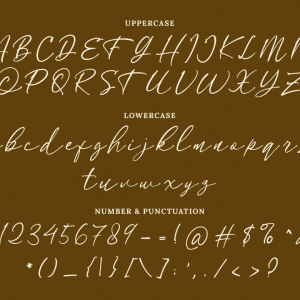 UPPERCASE
ABCDEFGHIJKLM
OPQRSTUVWXYZ
LOWERCASE
abcdefghijklmnopqr
tuvwxyz
NUMBER & PUNCTUATION
123456789-=!@#$%^
*()_{|}[\]:;',./<>?